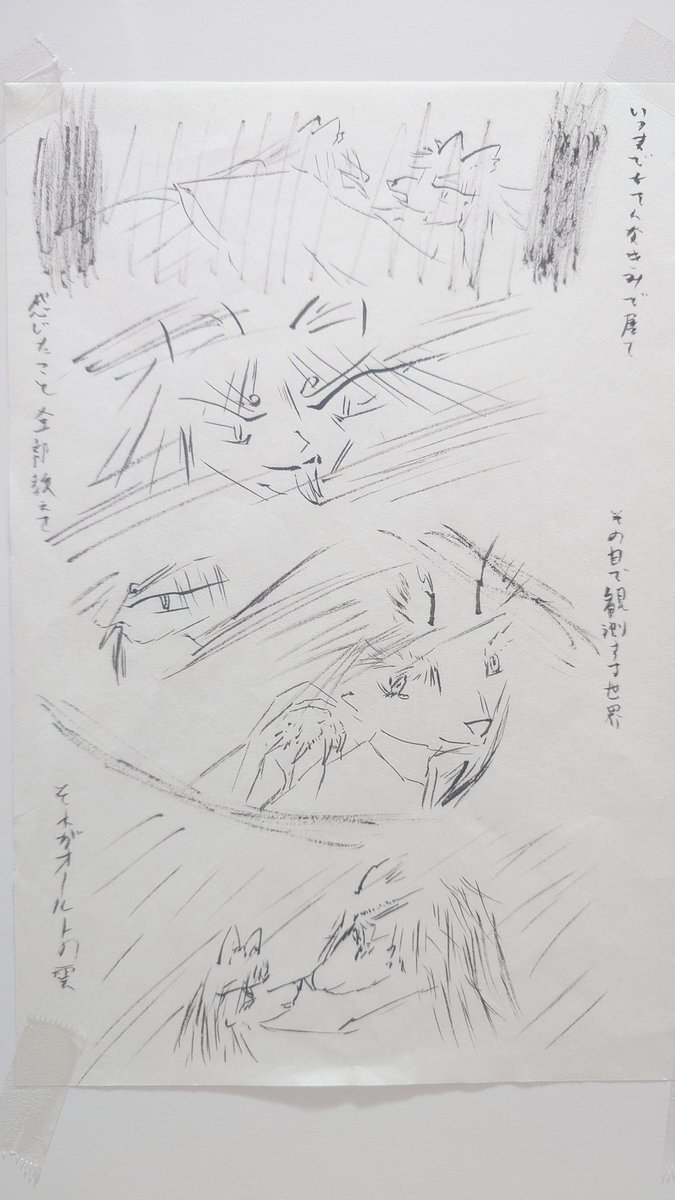 いつまでもそんなきみで居て
感じたこと全部教えて
その目で観測する世界
それがオールトの雲